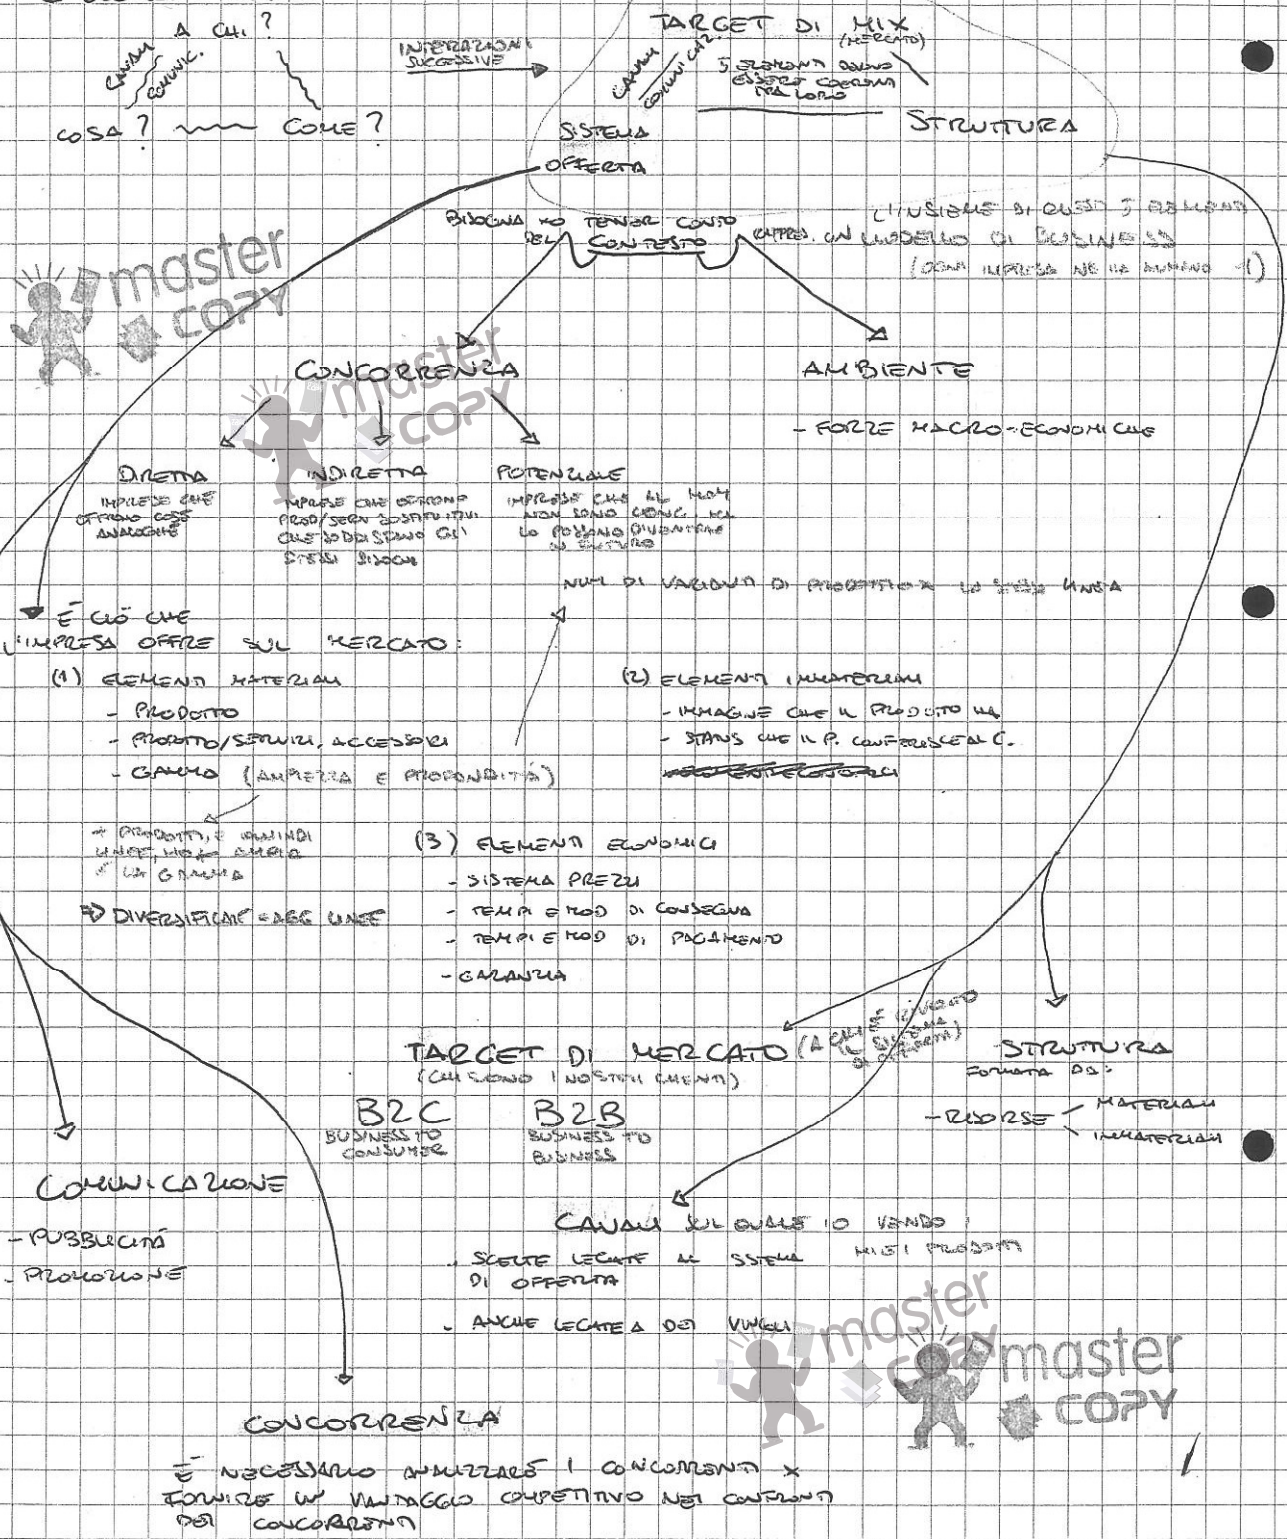 A CHI?
CANALI
COMUNIC.
COSA?
COME?
INTERAZIONI
SUCCESSIVE
TARGET DI MIX
(MERCATO)
CANALI
COMUNICAZ.
5 ELEMENTI DEVONO
ESSERE COERENTI
TRA LORO
STRUTTURA
SISTEMA
OFFERTA
BISOGNA TENER CONTO
DEL CONTESTO
L'INSIEME DI QUESTI 5 ELEMENTI
UN MODELLO DI BUSINESS
(OGNI IMPRESA NE HA ALMENO 1)
master
COPY
master
COPY
CONCORRENZA
AMBIENTE
- FORZE MACRO-ECONOMICHE
DIRETTA
IMPRESE CHE
OFFRONO COSE
ANALOGHE
INDIRETTA
IMPRESE CHE OFFRONO
PROD/SERV SOSTITUTIVI
CHE SODDISFANO GLI
STESSI BISOGNI
POTENZIALE
IMPRESE CHE AL MOM
NON SONO CONC. MA
LO POSSONO DIVENTARE
IN FUTURO
NUM DI VARIANTI DI PRODOTTO X LA STESSA LINEA
È CIÒ CHE
L'IMPRESA OFFRE SUL MERCATO:
(1) ELEMENTI MATERIALI
- PRODOTTO
- PRODOTTO/SERVIZI, ACCESSORI
- GAMMA (AMPIEZZA E PROFONDITÀ)
(2) ELEMENTI IMMATERIALI
- IMMAGINE CHE IL PRODOTTO HA
- STATUS CHE IL P. CONFERISCE AL C.
+ PRODOTTI, E QUINDI
LINEE, HO + AMPIA
È LA GAMMA
=> DIVERSIFICARE = AGG LINEE
(3) ELEMENTI ECONOMICI
- SISTEMA PREZZI
- TEMPI E MOD DI CONSEGNA
- TEMPI E MOD DI PAGAMENTO
- GARANZIA
TARGET DI MERCATO (A CHI È RIVOLTO
IL SISTEMA
DI OFFERTA)
(CHI SONO I NOSTRI CLIENTI)
B2C
BUSINESS TO
CONSUMER
B2B
BUSINESS TO
BUSINESS
STRUTTURA
FORMATA DA:
- RISORSE
MATERIALI
IMMATERIALI
COMUNICAZIONE
- PUBBLICITÀ
- PROMOZIONE
CANALI SUL QUALE IO VENDO I
MIEI PRODOTTI
- SCELTE LEGATE AL SISTEMA
DI OFFERTA
- ANCHE LEGATE A DEI VINCOLI
master
COPY
master
COPY
CONCORRENZA
È NECESSARIO ANALIZZARE I CONCORRENTI X
FORNIRE UN VANTAGGIO COMPETITIVO NEI CONFRONTI
DEI CONCORRENTI